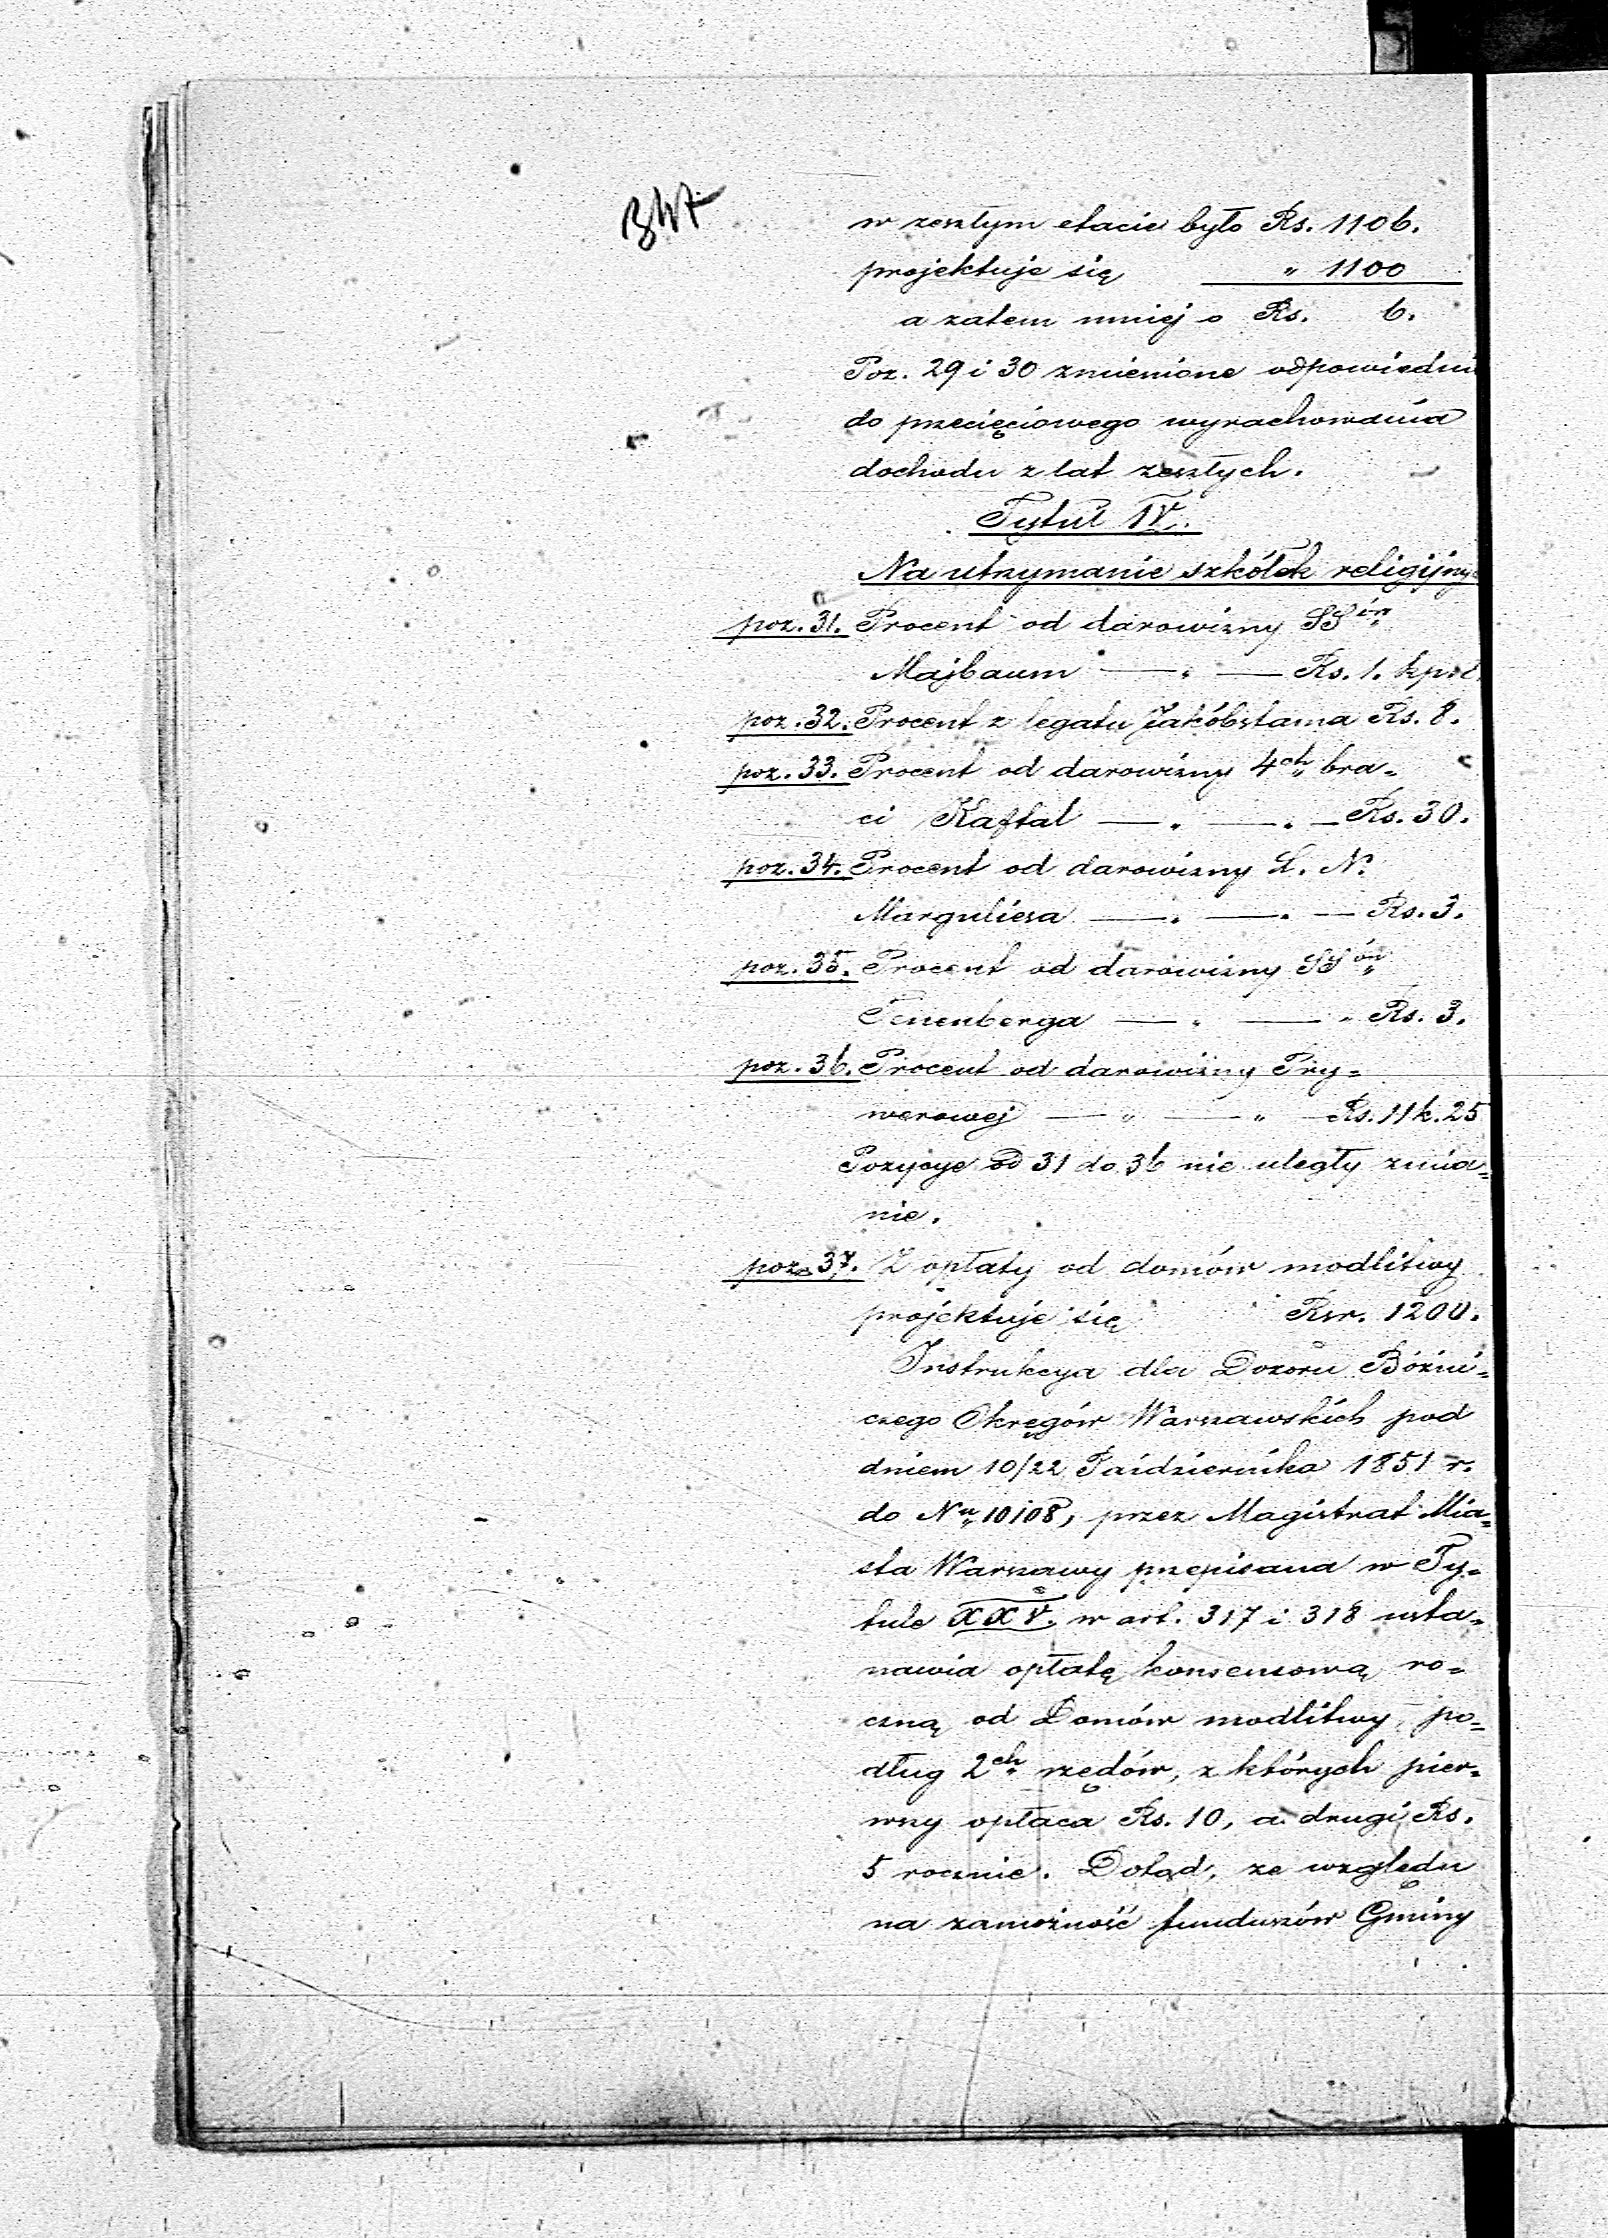 w zeszłym etacie było Rs. 1106.
projektuje się " 1100
a zatem mniej o Rs. 6.
Poz. 29 i 30 zmienione odpowiedni
do przecięciowego wyrachowania
dochodu z lat zeszłych.
Tytuł IV.
Na utrzymanie szkółek religijny
poz. 31. Procent od darowizny SSów
Majbaum — " — Rs. 1. kp
poz. 32. Procent z legatu Jakóbstama Rs. 8.
poz. 33. Procent od darowizny 4ch bra=
ci Kaftal — " — " — Rs. 30.
poz. 34. Procent od darowizny L. N.
Marguliesa — " — " — Rs. 3.
poz. 35. Procent od darowizny SSów
Tenenberga — " — " Rs. 3.
poz. 36. Procent od darowizny Pry=
werowej — " — " — Rs. 11 k. 25
Pozycye od 31 do 36 nie uległy zmia=
nie.
poz. 37. Z opłaty od domów modlitwy
projektuje się Rsr. 1200.
Instrukcya dla Dozoru Bóźni=
czego Okręgów Warszawskich pod
dniem 10/22 Października 1851 r.
do Nru 10108, przez Magistrat Mia=
sta Warszawy przepisana w Ty=
tule XXV. w art. 317 i 318 usta=
nawia opłatę konsensową ro=
czną od Domów modlitwy, po=
dług 2ch rzędów, z których pier=
wszy opłaca Rs. 10, a drugi Rs.
5 rocznie. Dotąd, ze względu
na zamożność funduszów Gminy